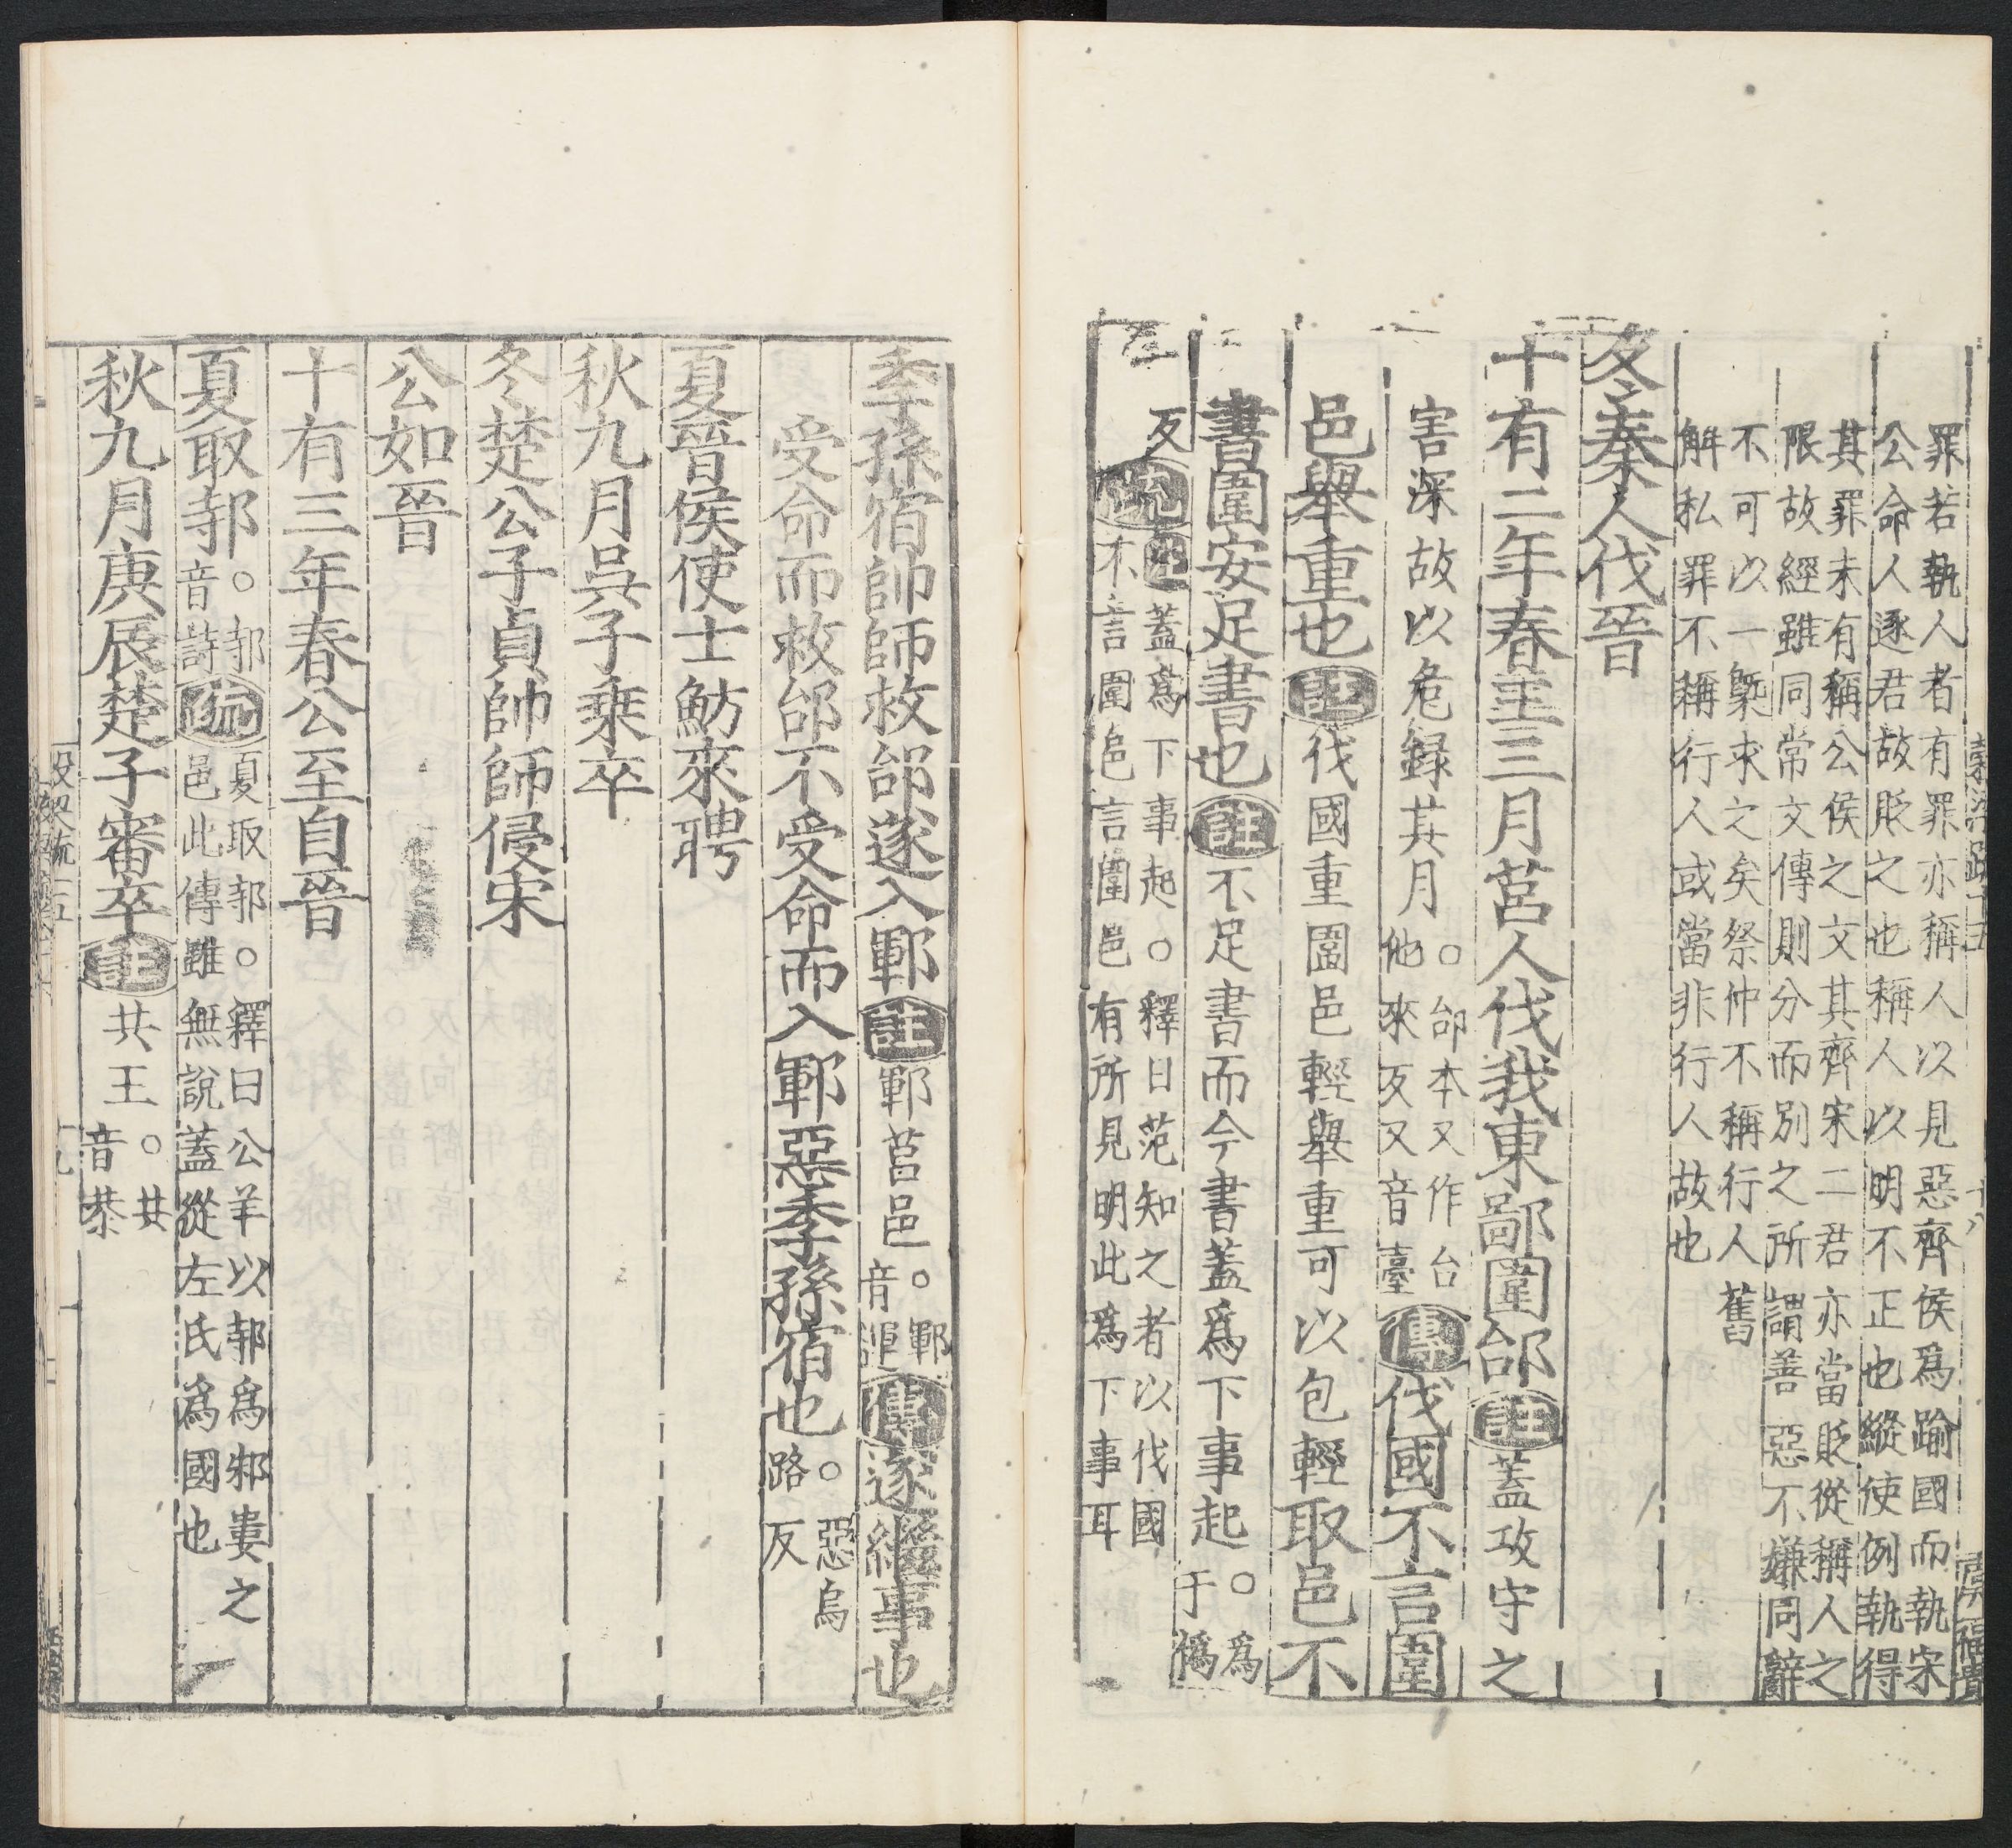 罪若執人者有罪亦稱人以見惡齊侯爲踰國而執宋
公命人逐君故貶之也稱人以明不正也縱使例執得
其罪未有稱公侯之文其齊宋二君亦當貶從稱人之
限故經雖同常文傳則分而別之所謂善惡不嫌同辭
不可以一槩求之矣祭仲不稱行人舊
解私罪不稱行人或當非行人故也
冬秦人伐晉
十有二年春王三月莒人伐我東鄙圍邰註蓋攻守之
害深故以危録其月。邰本又作台
他來反又音臺傳伐國不言圍
邑舉重也註伐國重圍邑輕舉重可以包輕取邑不
書圍安足書也註不足書而今書蓋爲下事起。爲
于僞
反疏註蓋爲下事起。釋曰范知之者以伐國
不言圍邑言圍邑有所見明此爲下事耳
季孫宿帥師救邰遂入鄆註鄆莒邑。鄆
音運傳遂繼事也
受命而救邰不受命而入鄆惡季孫宿也。惡烏
路反
夏晉侯使士魴來聘
秋九月吳子乗卒
冬楚公子貞帥師侵宋
公如晉
十有三年春公至自晉
夏取邿。邿
音詩疏夏取邿。釋曰公羊以邿爲邾婁之
邑此傳雖無說蓋從左氏爲國也
秋九月庚辰楚子審卒註共王。共
音恭